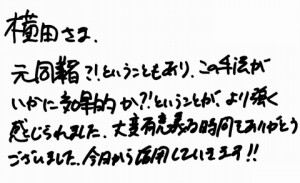 横田さま、
元同業?!ということもあり、この手法が
いかに効果的か?!ということが、より強く
感じられました。大変有意義な時間をありがとう
ございました。今日から活用していきます!!